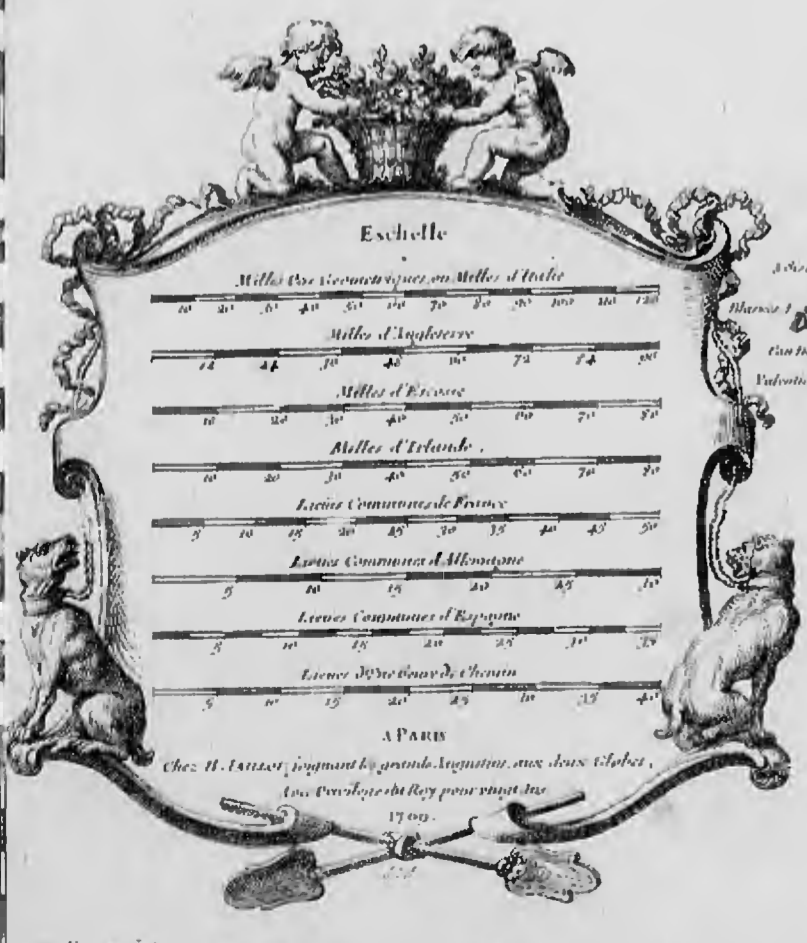 Eschelle
Milles Pas Geometriques, ou Milles d'Italie
10 20 30 40 50 60 70 80 90 100 110 120
Milles d'Angleterre
12 24 36 48 60 72 84 96
Milles d'Escosse
10 20 30 40 50 60 70 80
Milles d'Irlande.
10 20 30 40 50 60 70 80
Lieües Communes de France
5 10 15 20 25 30 35 40 45 50
Lieües Communes d'Allemagne
5 10 15 20 25 30
Lieües Communes d'Espagne
5 10 15 20 25 30 35
Lieües d'Une heure de Chemin
5 10 15 20 25 30 35 40
A PARIS
Chez H. IAILLOT, joignant les grands Augustins, aux deux Globes,
Avec Privilege du Roy pour vingt Ans
1700.